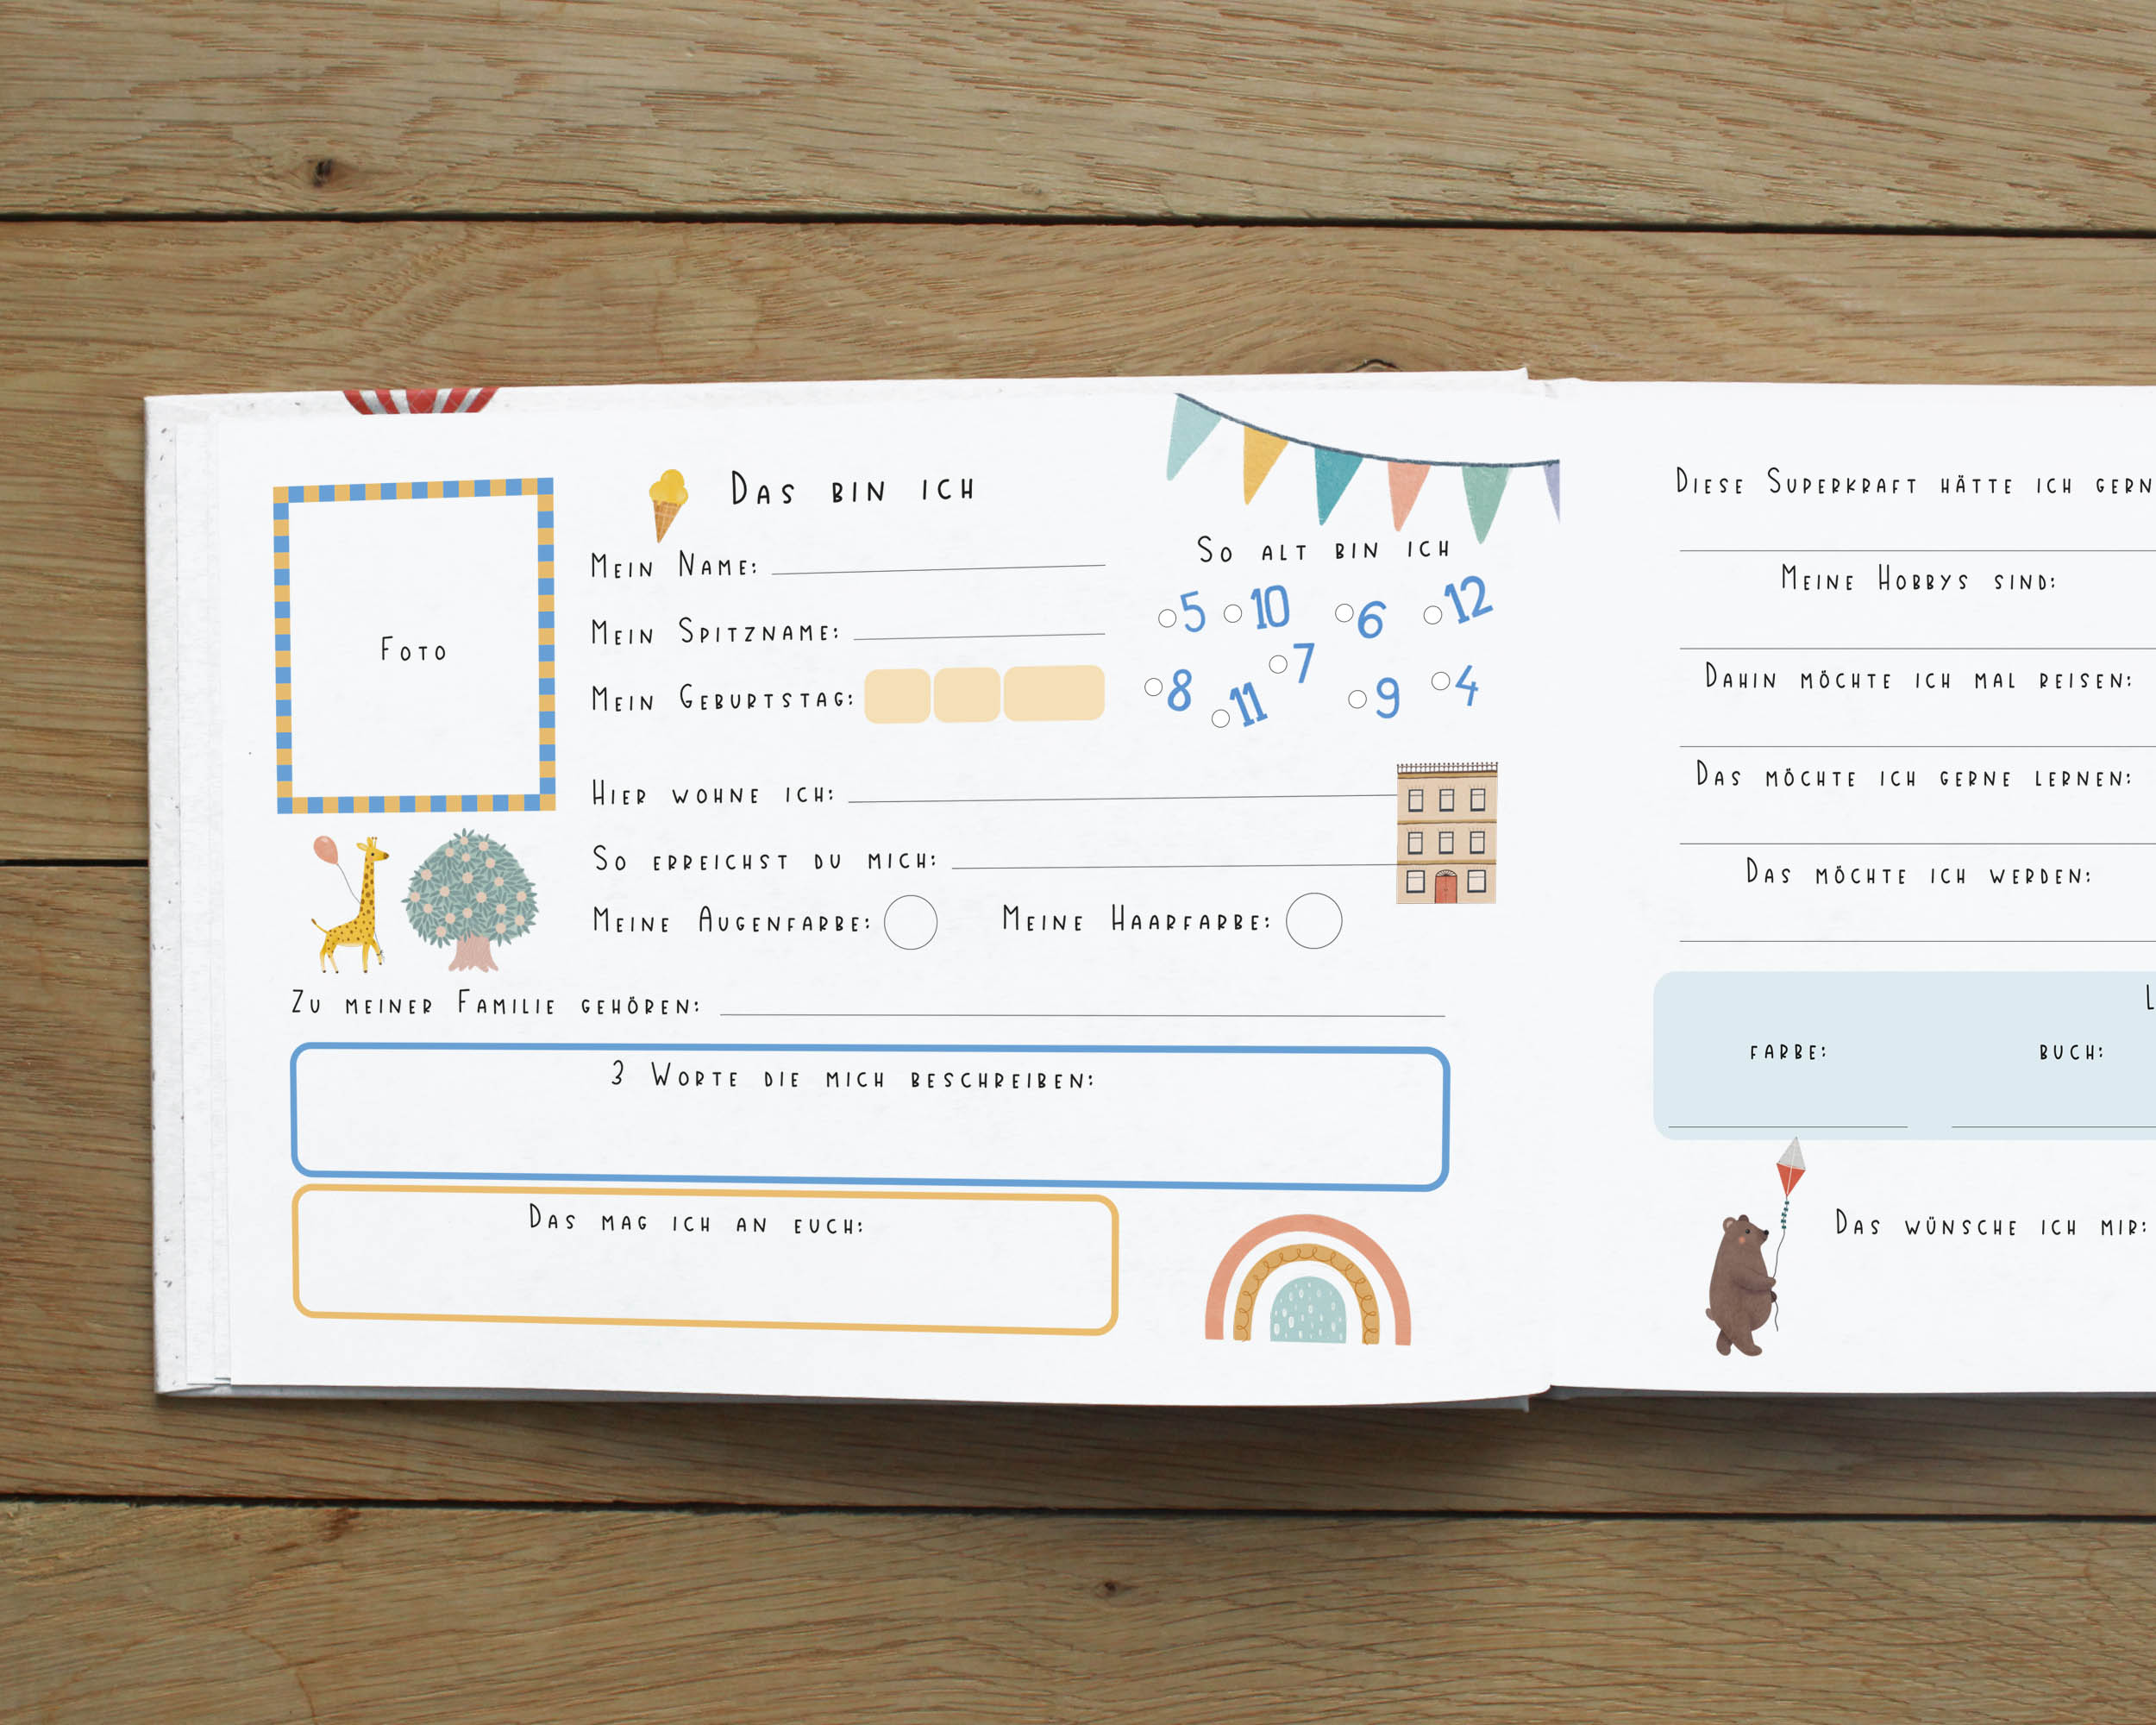 Das bin ich
Foto
Mein Name:
Mein Spitzname:
Mein Geburtstag:
So alt bin ich
5 10 6 12
8 11 7 9 4
Hier wohne ich:
So erreichst du mich:
Meine Augenfarbe: Meine Haarfarbe:
Zu meiner Familie gehören:
3 Worte die mich beschreiben:
Das mag ich an euch:
Diese Superkraft hätte ich gern
Meine Hobbys sind:
Dahin möchte ich mal reisen:
Das möchte ich gerne lernen:
Das möchte ich werden:
L
Farbe: Buch:
Das wünsche ich mir: